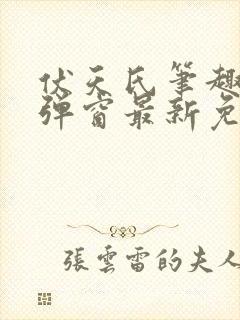 伏天氏筆趣
彈窗最新免
張雲雷的夫人